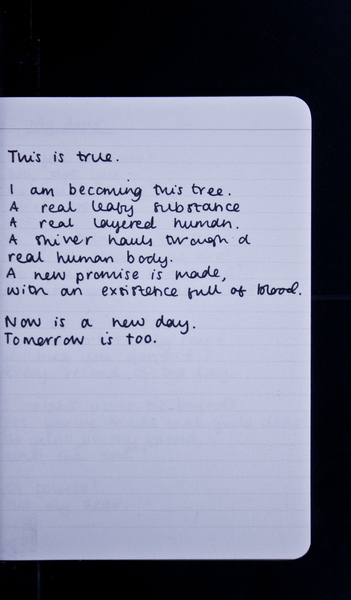 This is true.
I am becoming this tree.
A real leafy substance
A real layered human.
A shiver hauls through a
real human body.
A new promise is made,
with an exsistence full of blood.
Now is a new day.
Tomorrow is too.